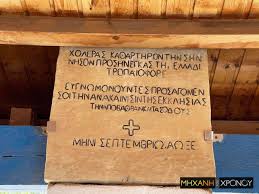 ΧΟΛΕΡΑΣ ΚΑΘΑΡΤΗΡΟΝ ΤΗΝ ΣΗΝ
ΝΗΣΟΝ ΠΡΟΣΗΝΕΓΚΑΣ ΤΗ, ΕΛΛΑΔΙ
ΤΡΟΠΑΙΟΦΟΡΕ
ΕΥΓΝΩΜΟΝΟΥΝΤΕΣ ΠΡΟΣΑΓΟΜΕΝ
ΣΟΙ ΤΗΝ ΑΝΑΚΑΙΝΙΣΙΝ ΤΗΣ ΕΚΚΛΗΣΙΑΣ
ΜΗΝΙ ΣΕΠΤΕΜΒΡΙΩ ΑΩΞΕ
ΜΗΧΑΝΗ ΧΡΟΝΟΥ